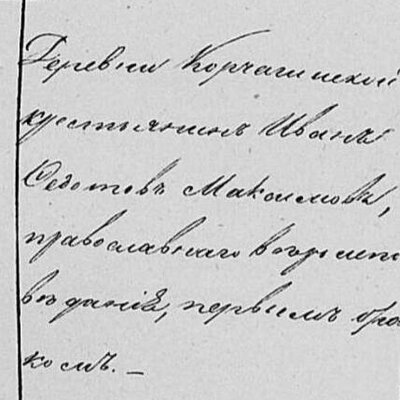 Деревни Корчагинской
крестьянинъ Иванъ
Ѳедотовъ Максимовъ,
православнаго вѣроиспо
вѣданія, первымъ бра
комъ. —